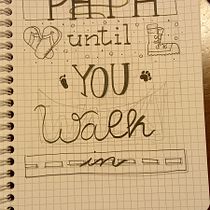 until
YOU
Walk
in